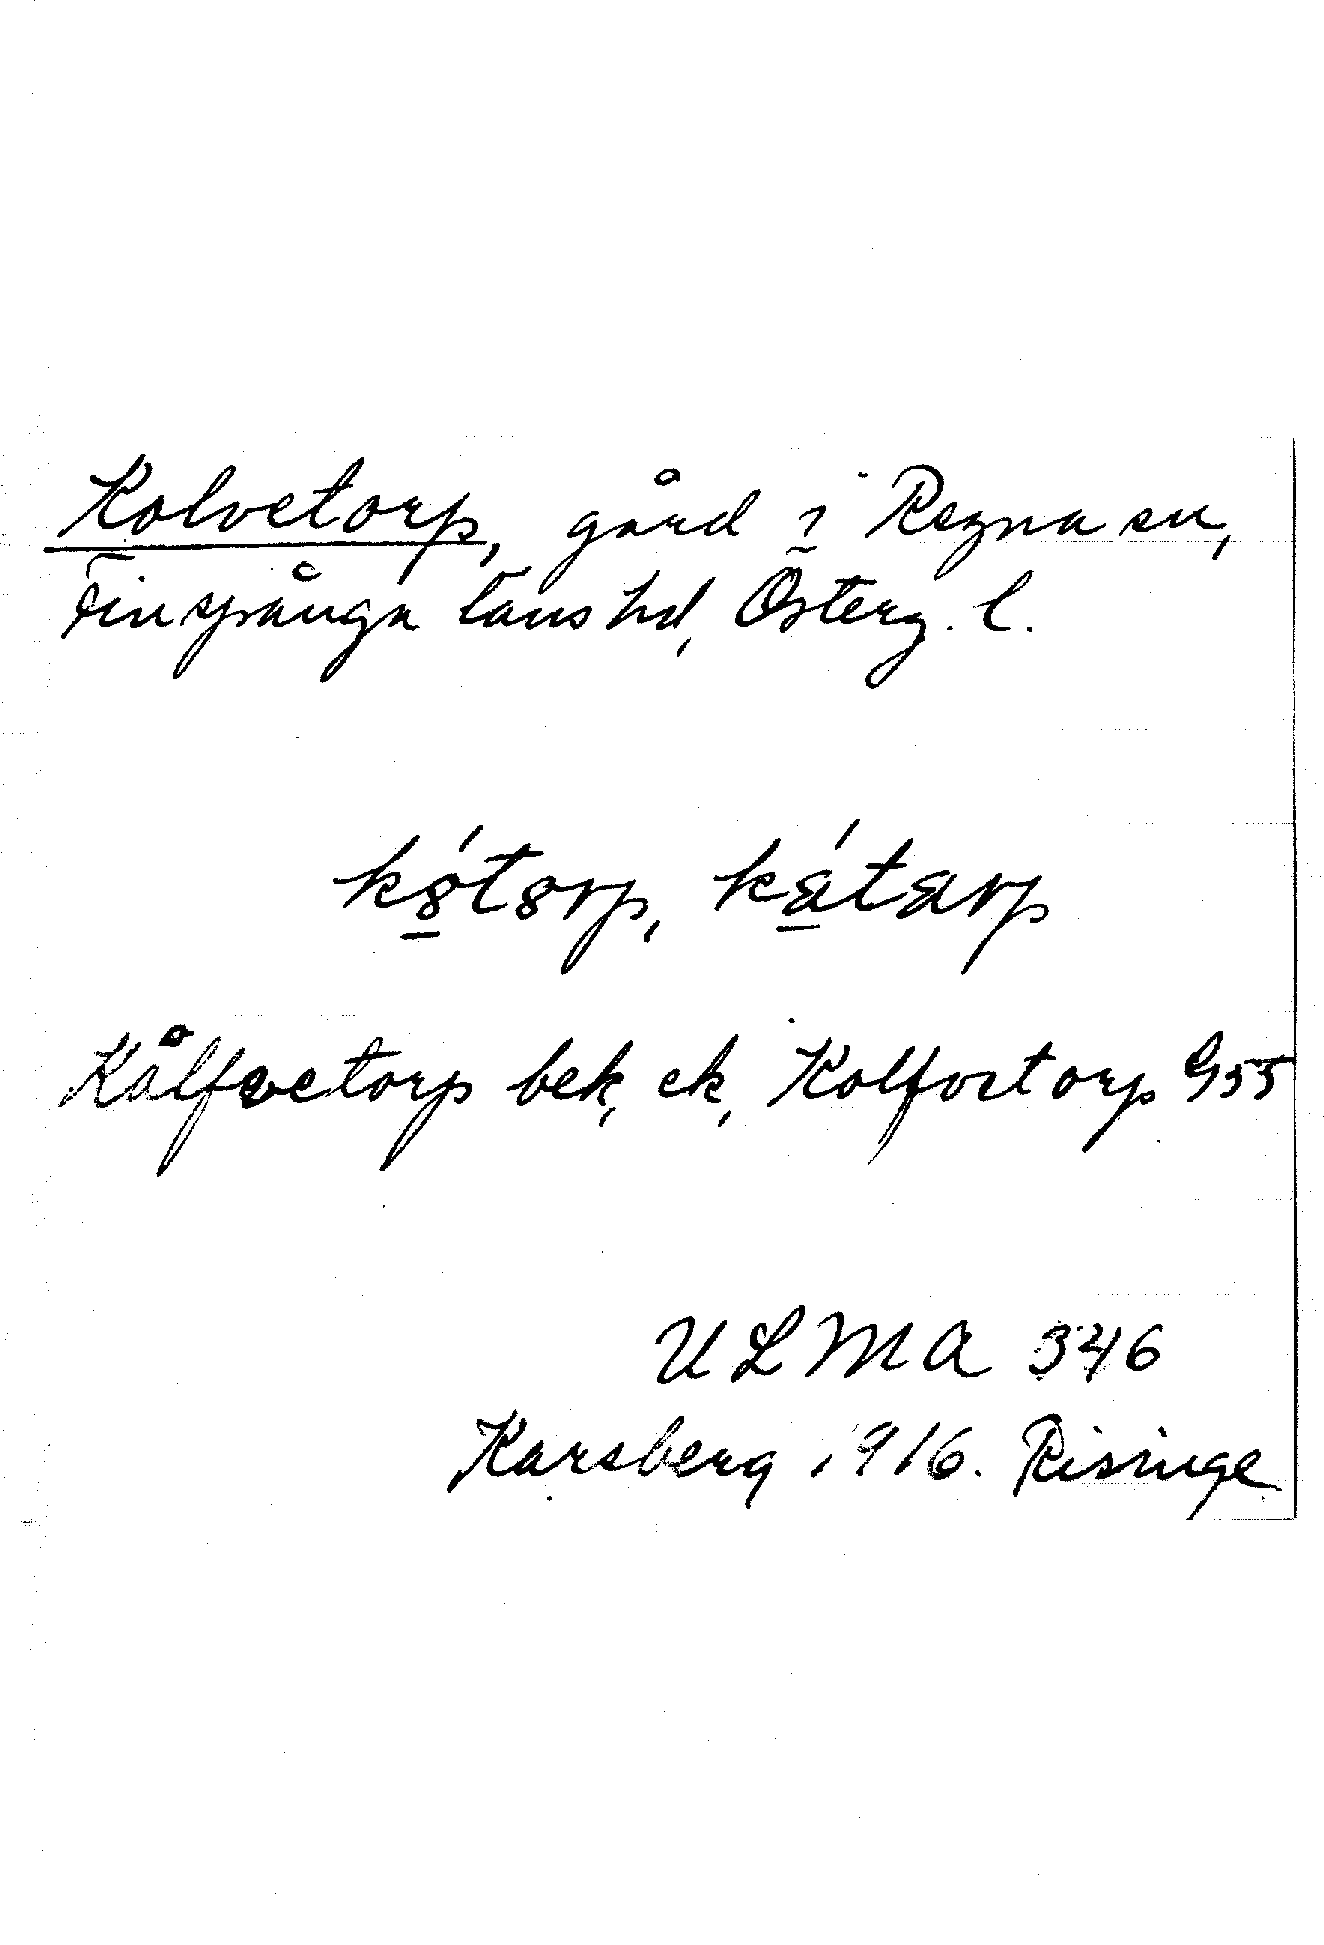 Kolvetorp, gård i Regna sn,
Finspånga läns hd, Österg. l.
kótorp, kátarp
Kålfvetorp bek, ek, Kolfvetorp G55
ULMA 346
Karsberg 1916. Risinge